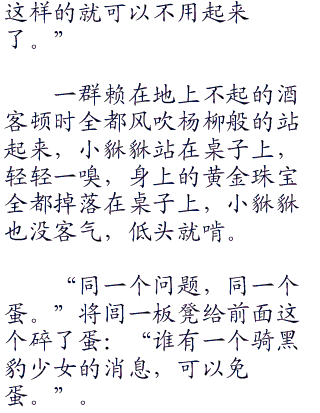 这样的就可以不用起来
了。”
一群赖在地上不起的酒
客顿时全都风吹杨柳般的站
起来，小貅貅站在桌子上，
轻轻一嗅，身上的黄金珠宝
全都掉落在桌子上，小貅貅
也没客气，低头就啃。
“同一个问题，同一个
蛋。”将闾一板凳给前面这
个碎了蛋：“谁有一个骑黑
豹少女的消息，可以免
蛋。”。